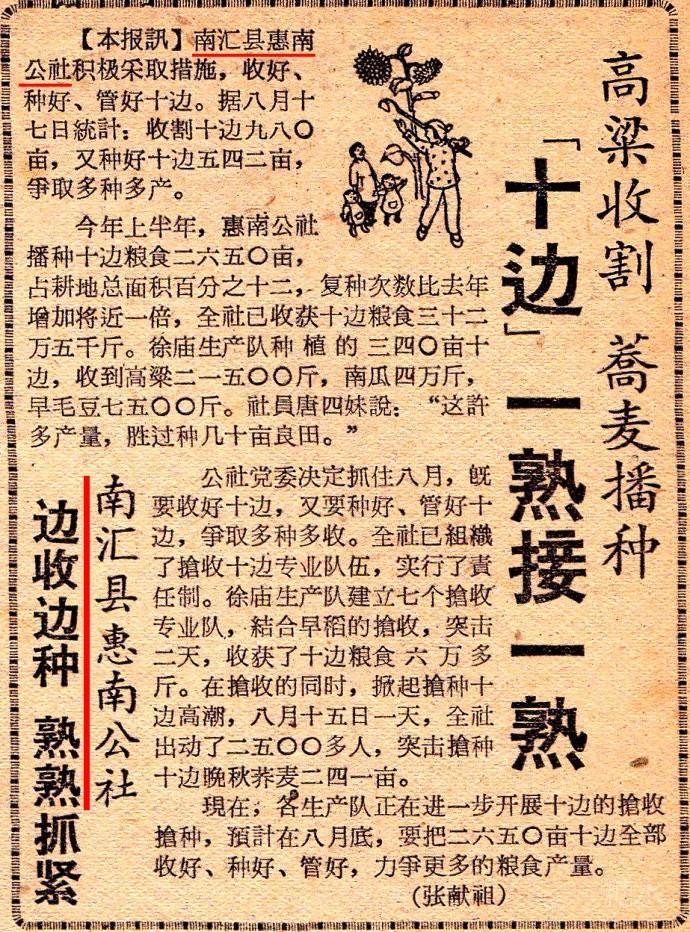 高梁收割 蕎麦播种
「十边」一熟接一熟
南汇县惠南公社
边收边种 熟熟抓紧
【本报訊】南汇县惠南
公社积极采取措施，收好、
种好、管好十边。据八月十
七日統計：收割十边九八〇
亩，又种好十边五四二亩，
爭取多种多产。
今年上半年，惠南公社
播种十边粮食二六五〇亩，
占耕地总面积百分之十二，复种次数比去年
增加将近一倍，全社已收获十边粮食三十二
万五千斤。徐庙生产队种植的三四〇亩十
边，收到高粱二一五〇〇斤，南瓜四万斤，
早毛豆七五〇〇斤。社員唐四妹說：“这許
多产量，胜过种几十亩良田。”
公社党委决定抓住八月，旣
要收好十边，又要种好、管好十
边，爭取多种多收。全社已組織
了搶收十边专业队伍，实行了責
任制。徐庙生产队建立七个搶收
专业队，結合早稻的搶收，突击
二天，收获了十边粮食六万多
斤。在搶收的同时，掀起搶种十
边高潮，八月十五日一天，全社
出动了二五〇〇多人，突击搶种
十边晚秋荞麦二四一亩。
現在，各生产队正在进一步开展十边的搶收
搶种，預計在八月底，要把二六五〇亩十边全部
收好、种好、管好，力爭更多的粮食产量。
（张献祖）